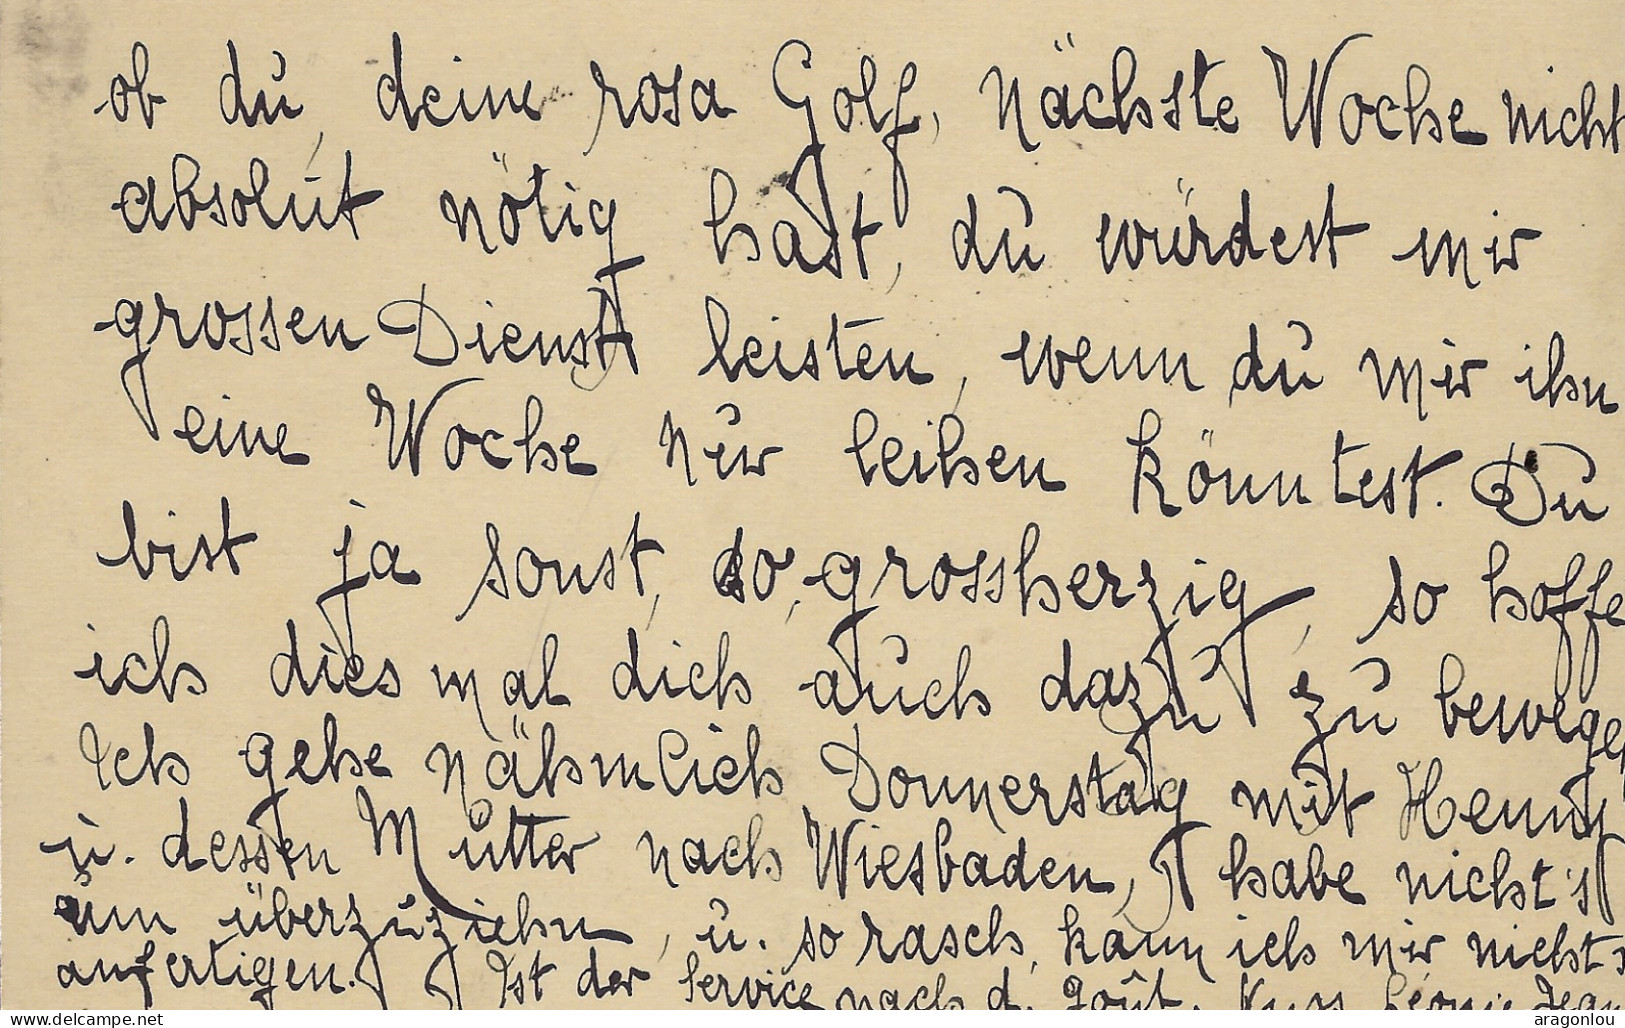 ob du, deine rosa Golf, nächste Woche nicht
absolut nötig hast, du würdest mir
grossen Dienst leisten, wenn du mir ihn
eine Woche nur leihen könntest. Du
bist ja sonst, so, grossherzig, so hoffe
ich diesmal dich auch dazu zu bewegen
Ich gehe nähmlich, Donnerstag mit Henny
u. dessen Mutter nach Wiesbaden, habe nicht's
um überzuziehn, u. so rasch, kann ich mir nichts
anfertigen. Ist der Service nach d. goût. Kuss Léonie Jean
aragonlou